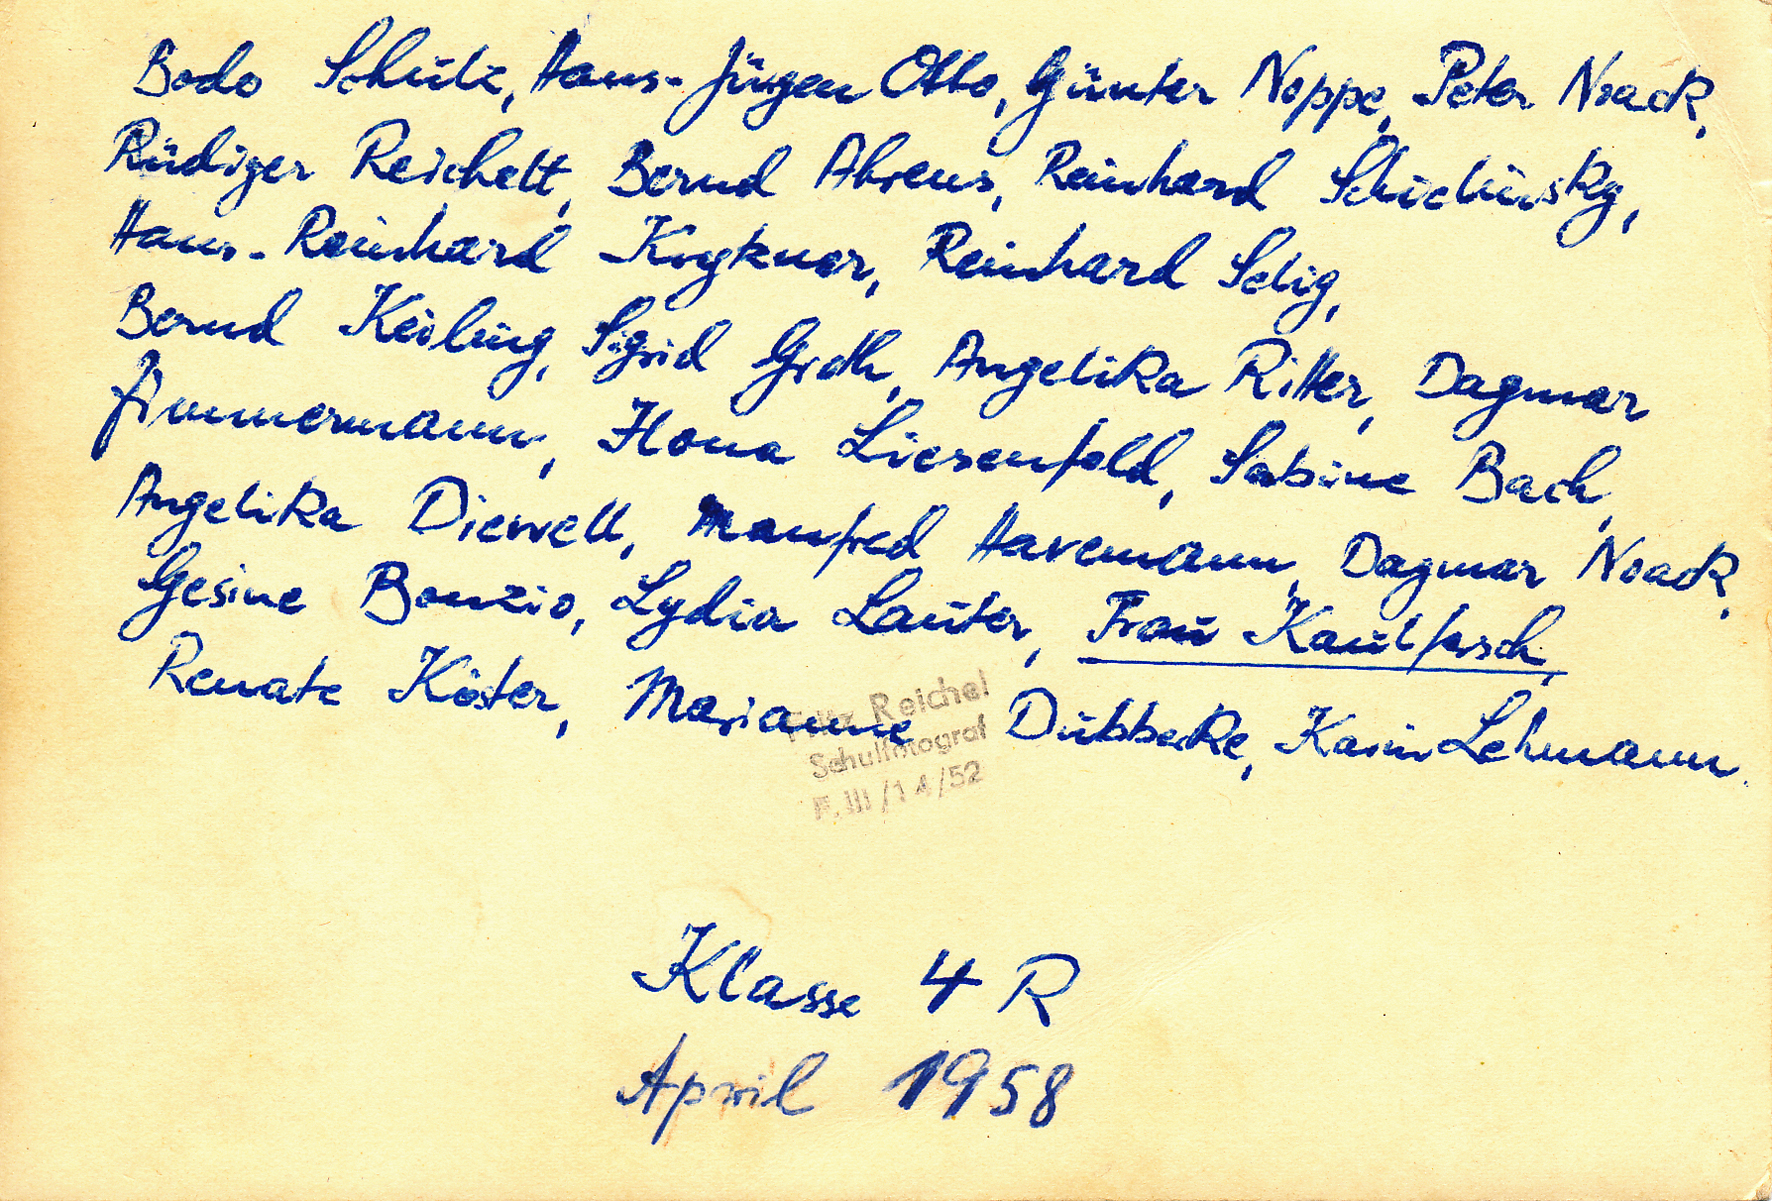 Bodo Schulz, Hans-Jürgen Otto, Günter Noppe, Peter Noack,
Rüdiger Reichelt, Bernd Ahrens, Reinhard Schielinsky,
Hans-Reinhard Reinhard Selig,
Bernd Keiling, Sigrid Groth, Angelika Ritter, Dagmar
Zimmermann, Ilona Liesenfeld, Sabine Bach,
Angelika Manfred Havemann, Dagmar Noack,
Gesine Bonzio, Lydia Lauter, Frau Kaulfersch,
Renate Köster, Marianne Dübbecke, Karin Lehmann.
Fritz Reichel
Schulfotograf
F. III / 1 4 / 52
Klasse 4 R
April 1958